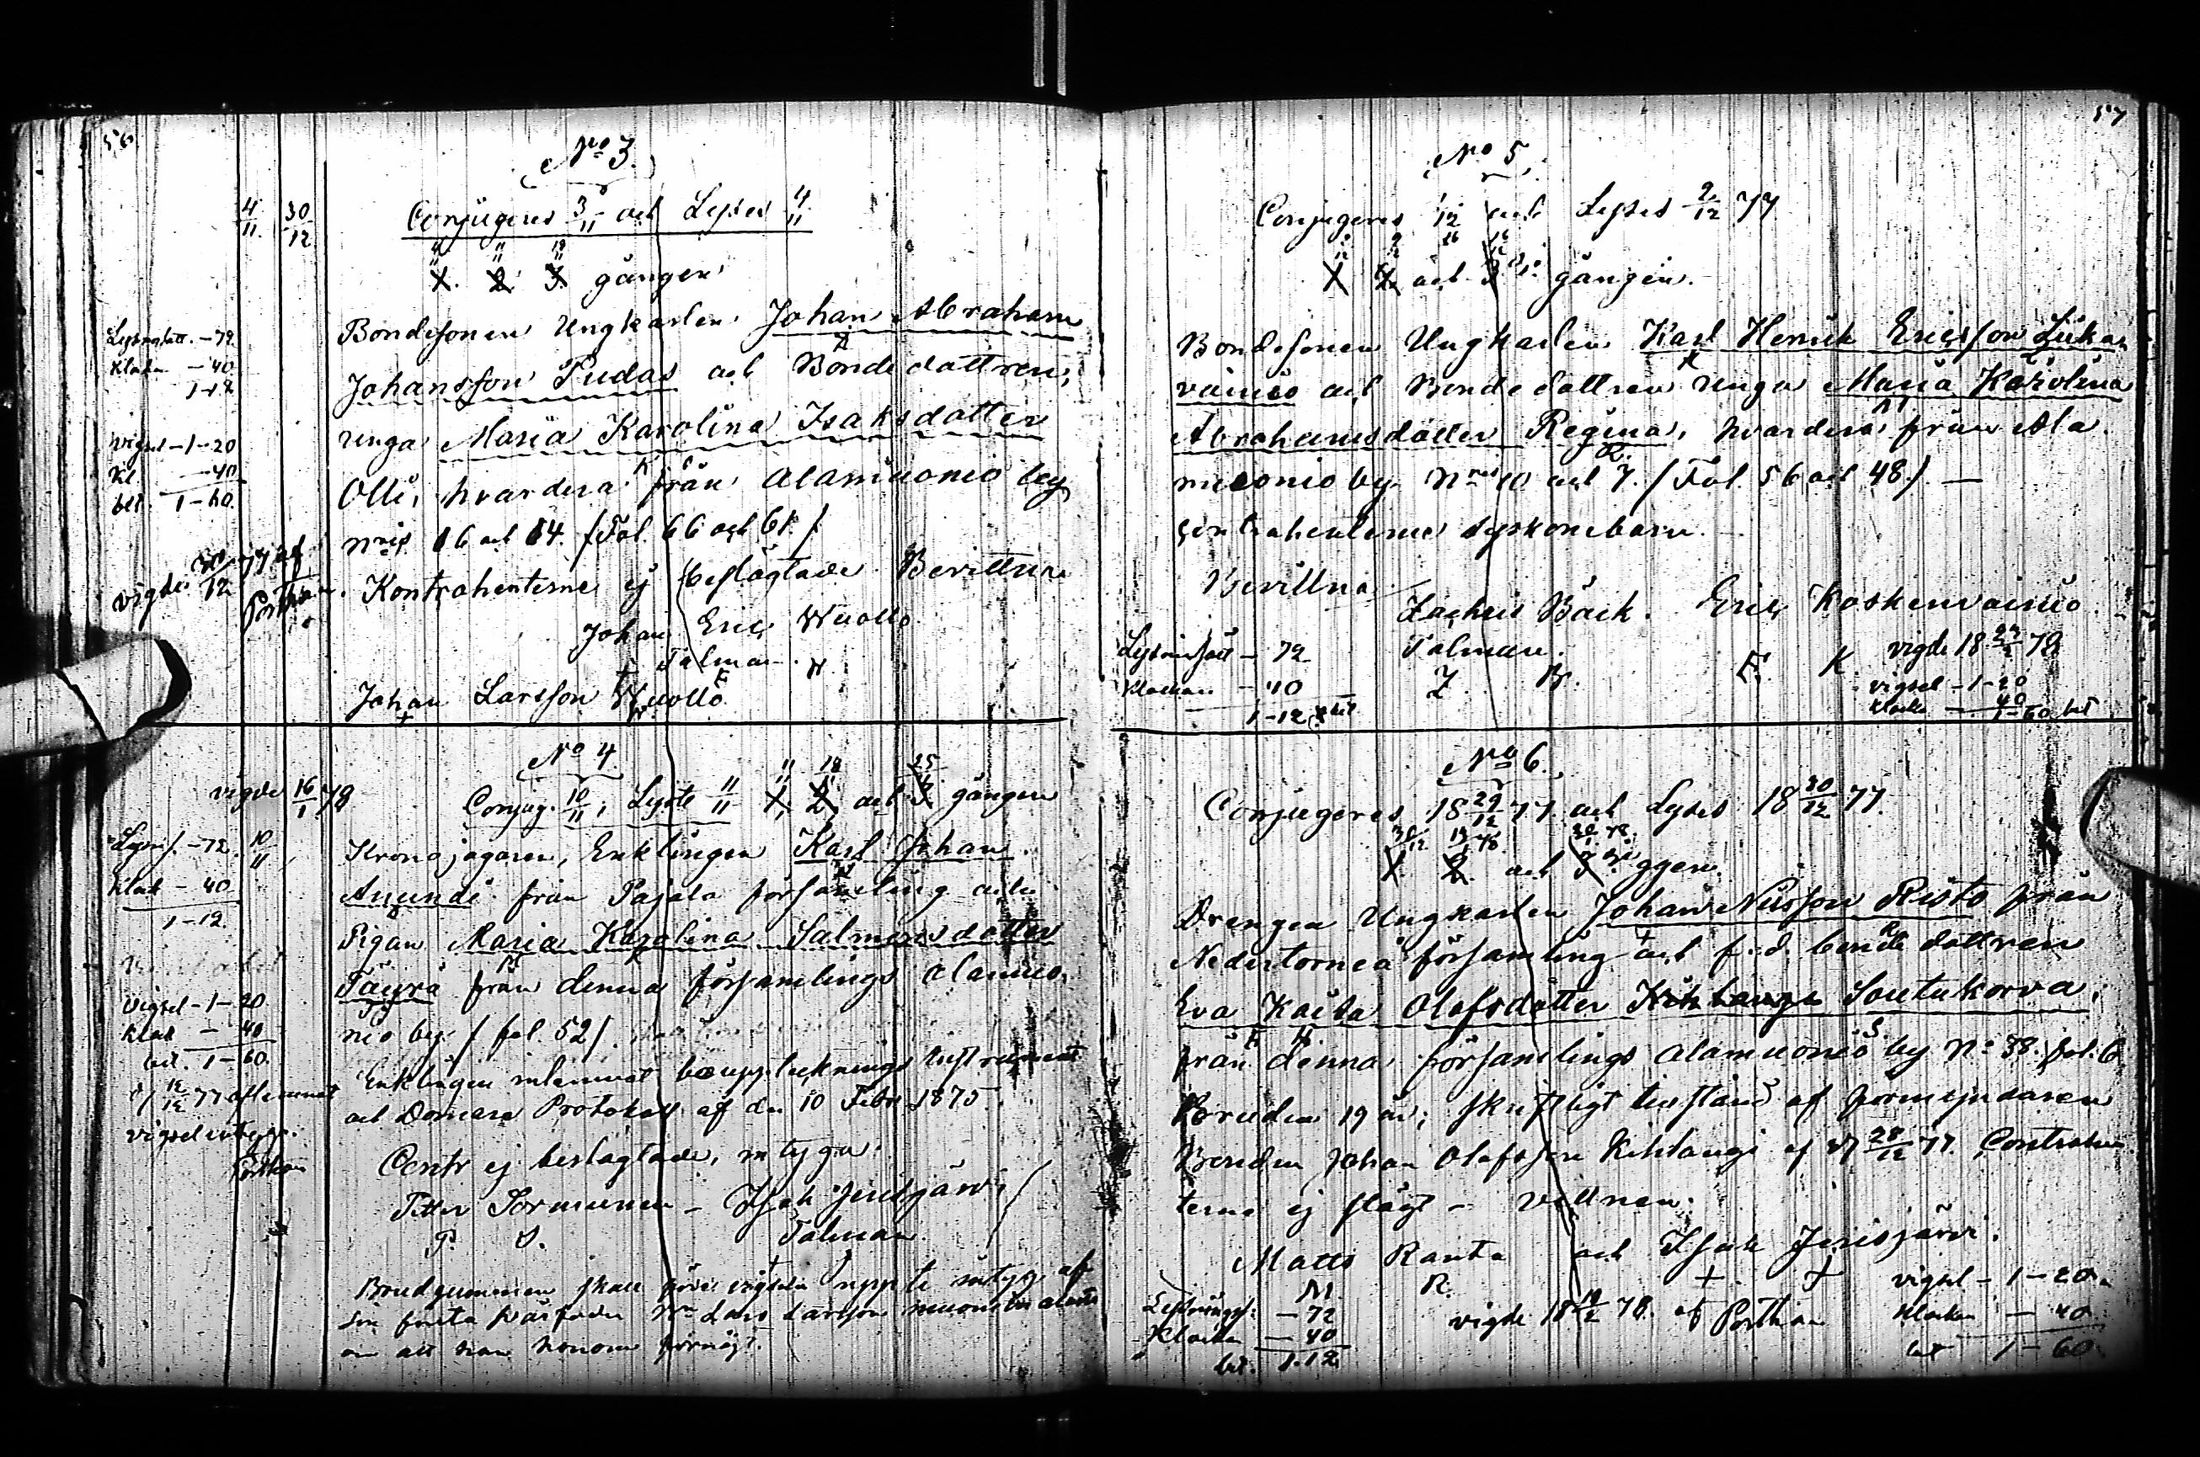 56
No 3.
4/11 30/12
Conjugeres 3/11 och Lystes 4/11
1. 2. 3. gången
Lysningsatt. - 72
Klockn - 40
1-12
Bondesonen Ungkarlen Johan Abraham
Johansson Pudas och Bondedottren,
unga Maria Karolina Isaksdotter
Vigsel - 1-20
Kl. - 40
bet. 1-60
Olli, hvardera från Alamuonio by
nris 16 och 14. /Fol. 66 och 61./
vigde 30/12 77 af
Porthan
Kontrahenterne ej beslägtade. Bevittna
Johan Eric Wuollo
Tolman.
Johan Larsson Wuollo
No 4
vigde 16/1 78
Conjug. 10/11, Lyste 11/11 1, 2, och 3 gången
Lysn. - 72 10/11
Klock - 40
1-12
Kronojägaren, Enklingen Karl Johan
Anundi från Pajala församling och
Pigan Maria Karolina Salmonsdotter
Täyrä från denna församlings Alamuo-
nio by / fol. 52/
Vigsel - 1-20
Klock - 40
bet. 1-60
Enklingen inlemnat bouppteckningsinstrument
och Domare Protokoll af den 10 Febr 1875.
12/12 77 aflemnat
vigselintyg.
Porthan
Contr ej beslägtade, intyga:
Petter Sormunen - Isak Jerisjärvi
P. S. Tolman
Brudgummen skall före vigseln uppte intyg af
sin första svärfader Nn Lars Larsson
om att han honom förnögt.
57
No 5.
Conjugeres 1/12 och Lystes 2/12 77
1 2. och 3 gången.
Bondesonen Ungkarlen Karl Henrik Ericsson Liika-
vainio och Bondedottren Unga Maria Karolina
Abrahamsdotter Regina, hvardera från Ala
muonio by Nris 10 och 7. /Fol. 56 och 48/. —
Contrahenterne syskonebarn.
Bevittna
Zachris Bäck. Eric Koskenvainio
Tolman.
Z. B. E. K
Lysnings - 72
Klockan - 40
1-12 bet
vigde 18 24/2 78
vigsel - 1-20
Klockn - 40
1-60 bet
No 6.
Conjugeres 18 29/12 77 och Lystes 18 30/12 77.
1. 2. och 3. ggen.
Drengen Ungkarlen Johan Nilsson Risto från
Nedertorneå församling och f.d. bondedottren
Eva Kaisa Olofsdotter Kihlangi Soutukorva,
från denna församlings Alamuonio by No 38. fol. 6
Bruden 19 år; skriftligt tillstånd af förmyndaren
Bonden Johan Olofsson Kihlangi af d 28/12 77. Contrahen
terne ej slägt - vittnen.
Matts Ranta och Isak Jerisjärvi.
M R.
Lysningss. - 72
Klockn - 40
bet. 1-12
vigde 18 10/2 78. af Porthan
vigsel - 1-20
Klockn - 40
bet 1-60